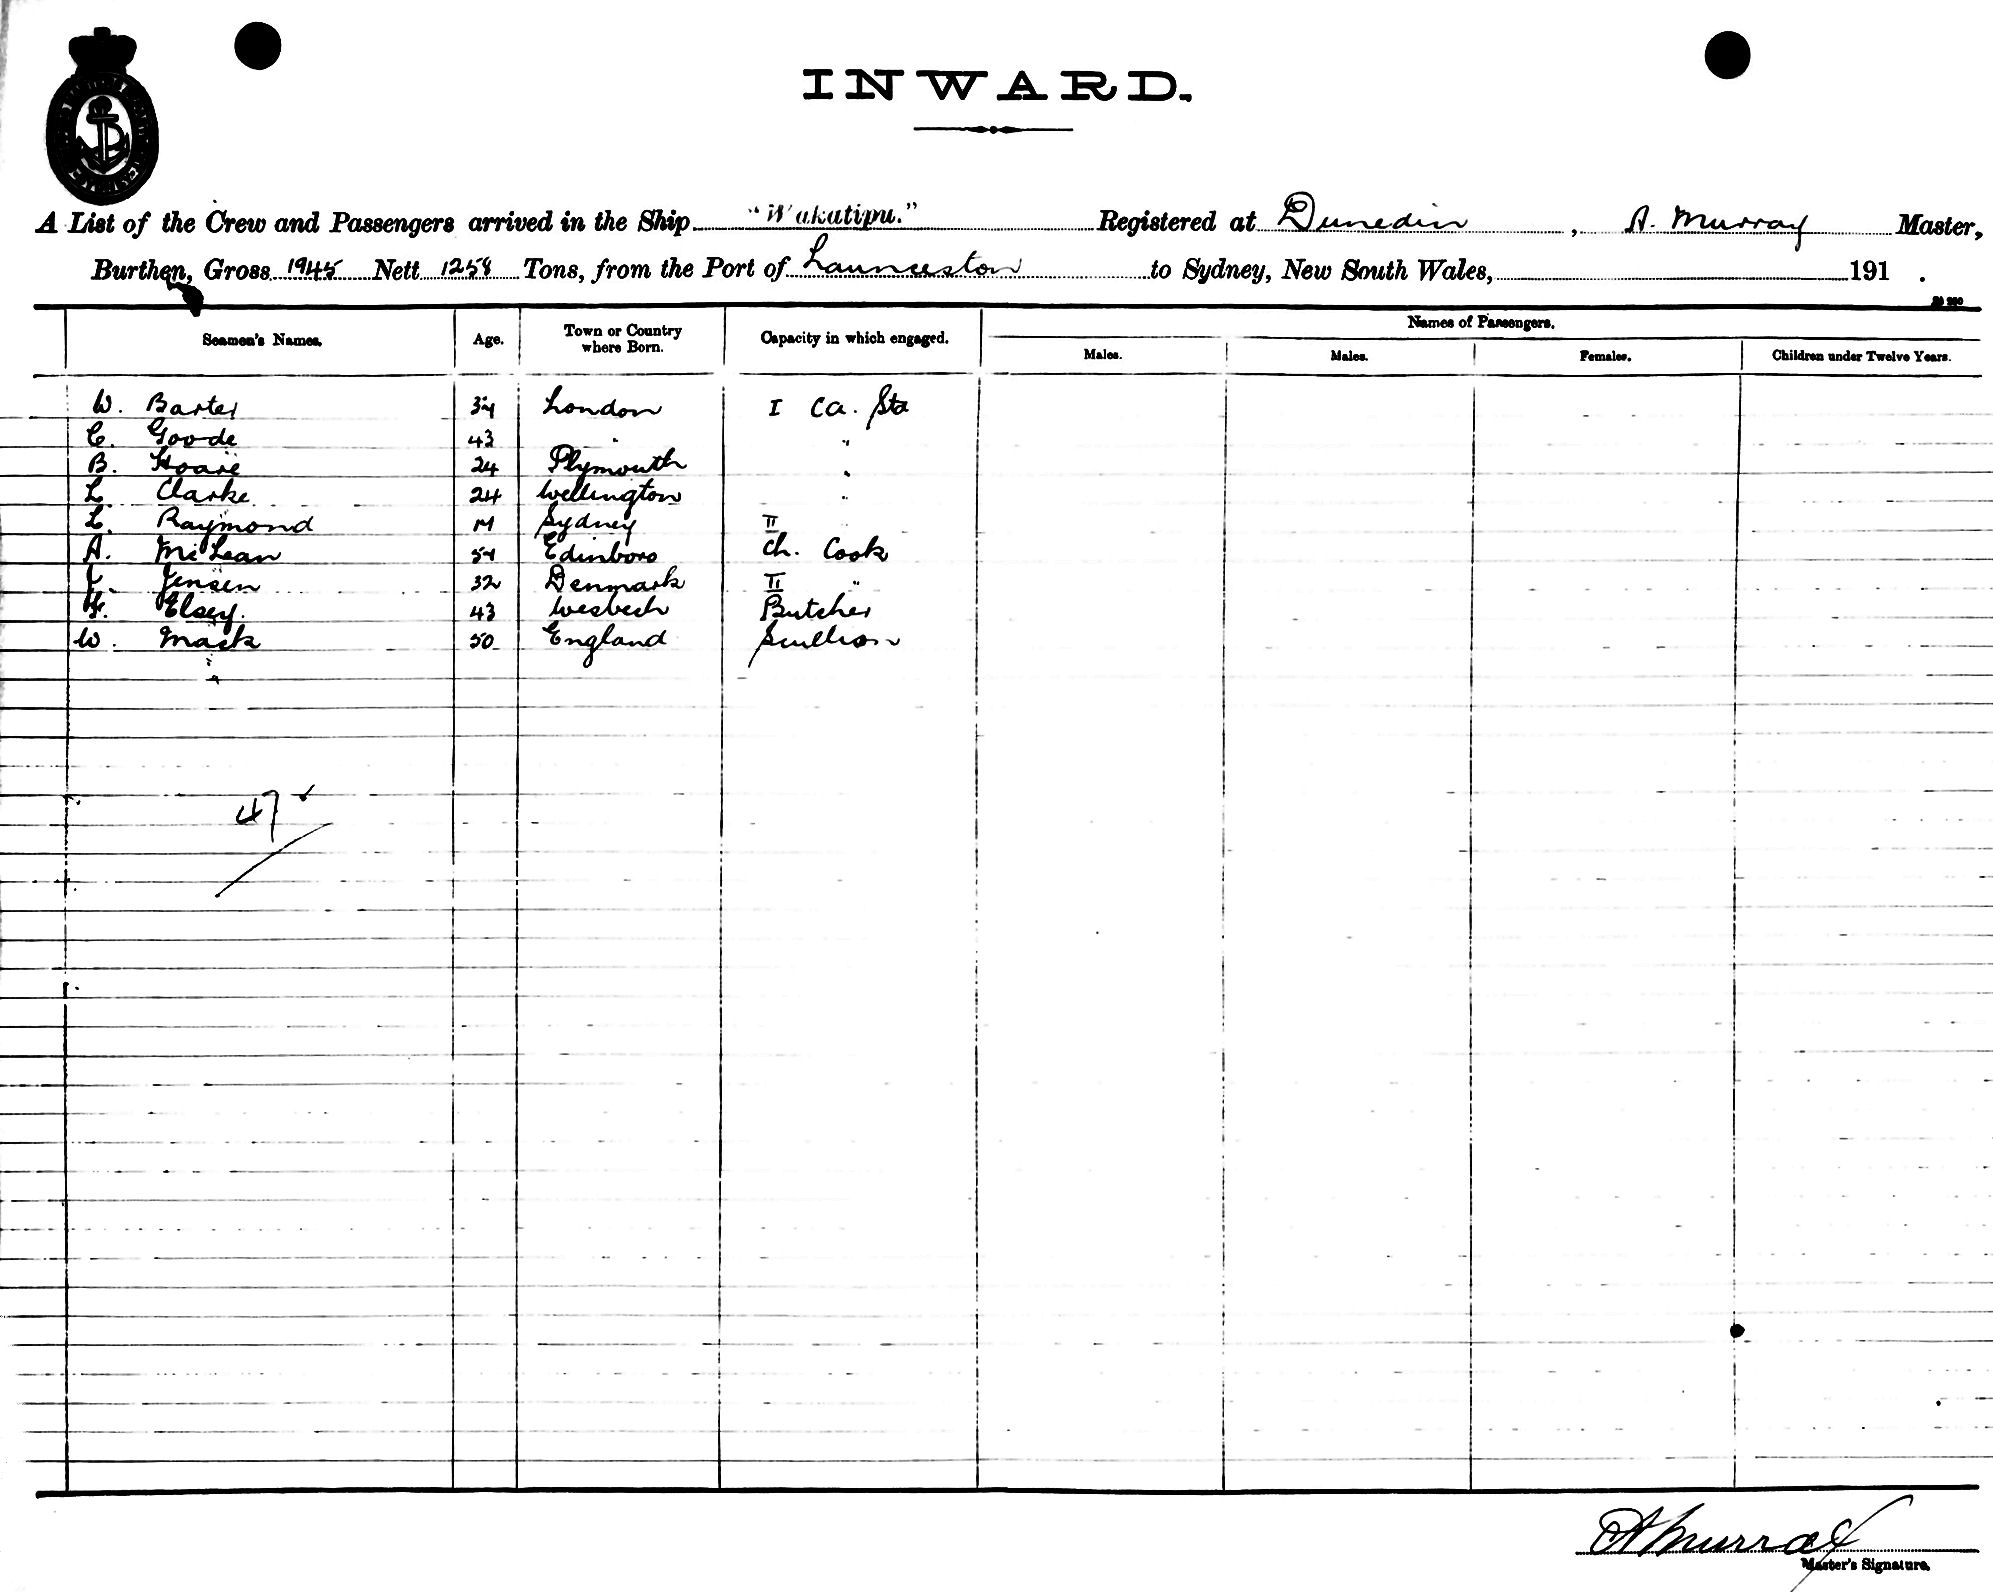 INWARD.
A List of the Crew and Passengers arrived in the Ship "Wakatipu." Registered at Dunedin, A. Murray Master,
Burthen, Gross 1945 Nett 1258 Tons, from the Port of Launceston to Sydney, New South Wales, 191 .
Names of Passengers.
Seamen's Names. Age. Town or Country where Born. Capacity in which engaged. Males. Males. Females. Children under Twelve Years.
W. Barter 34 London I Ca. Sta
C. Goode 43 " "
B. Hoare 24 Plymouth "
L. Clarke 24 Wellington "
L. Raymond Sydney II "
A. McLean 54 Edinboro Ch. Cook
Jensen 32 Denmark II "
Elsey. 43 Wesbech Butcher
W. Mack 50 England Scullion
47 ✓
A Murray
Master's Signature.